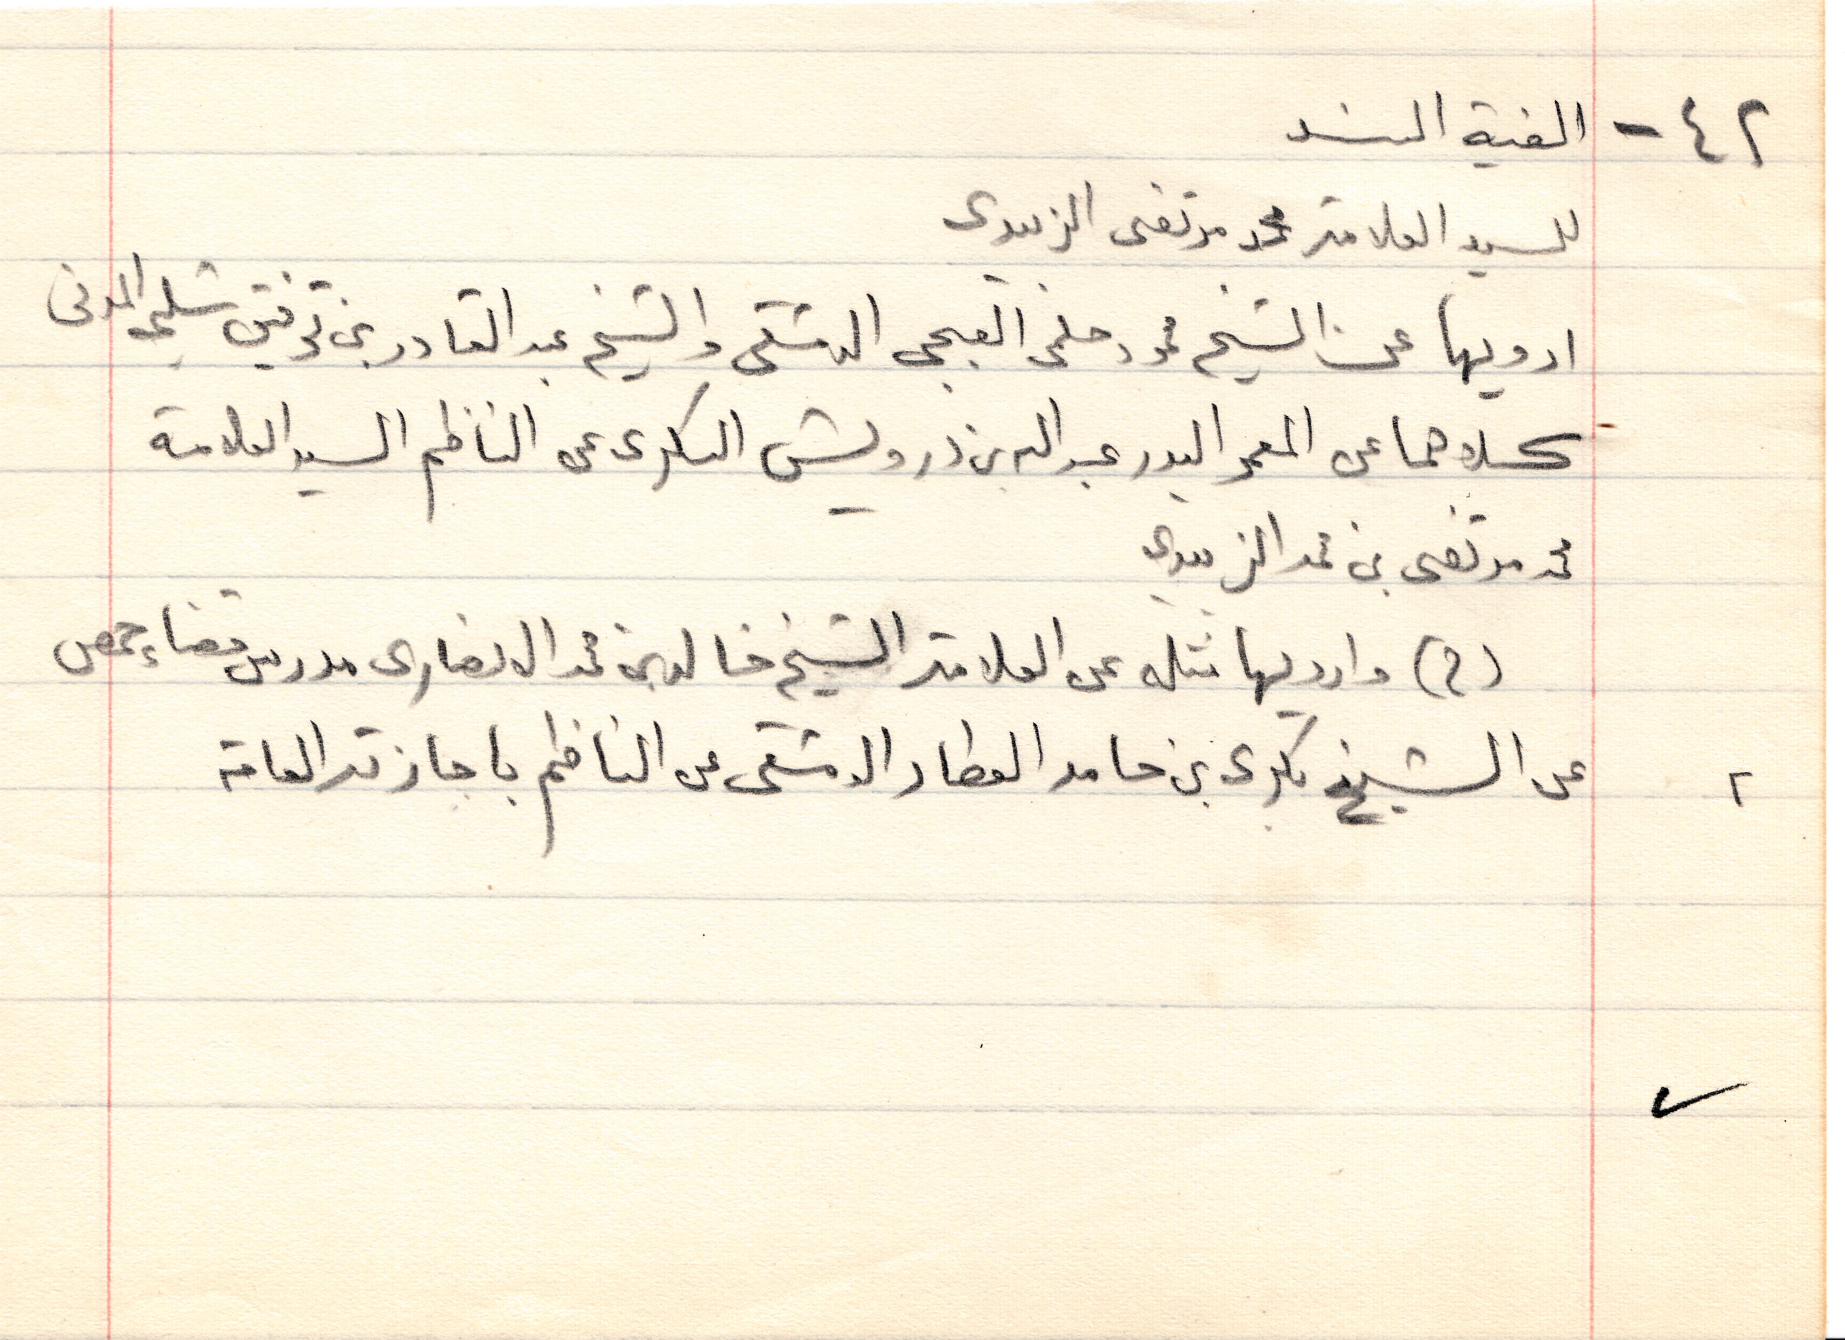 ٤٢ - الفية السند
للسيد العلامة محمد مرتضى الزبيدى
ارويها عن الشيخ محمود حلمى القبجى الدمشقى والشيخ عبد القادر بن توفيق شلبى المدنى
كلاهما عن المعمر البدر عبد الله بن درويش السكرى عن الناظم السيد العلامة
محمد مرتضى بن محمد الزبيدى
(٢) وارويها مثله عن العلامة الشيخ خالد بن محمد الانصارى مدرس قضاء حمص
عن الشيخ بكرى بن حامد العطار الدمشقى عن الناظم باجازته العامة
٢